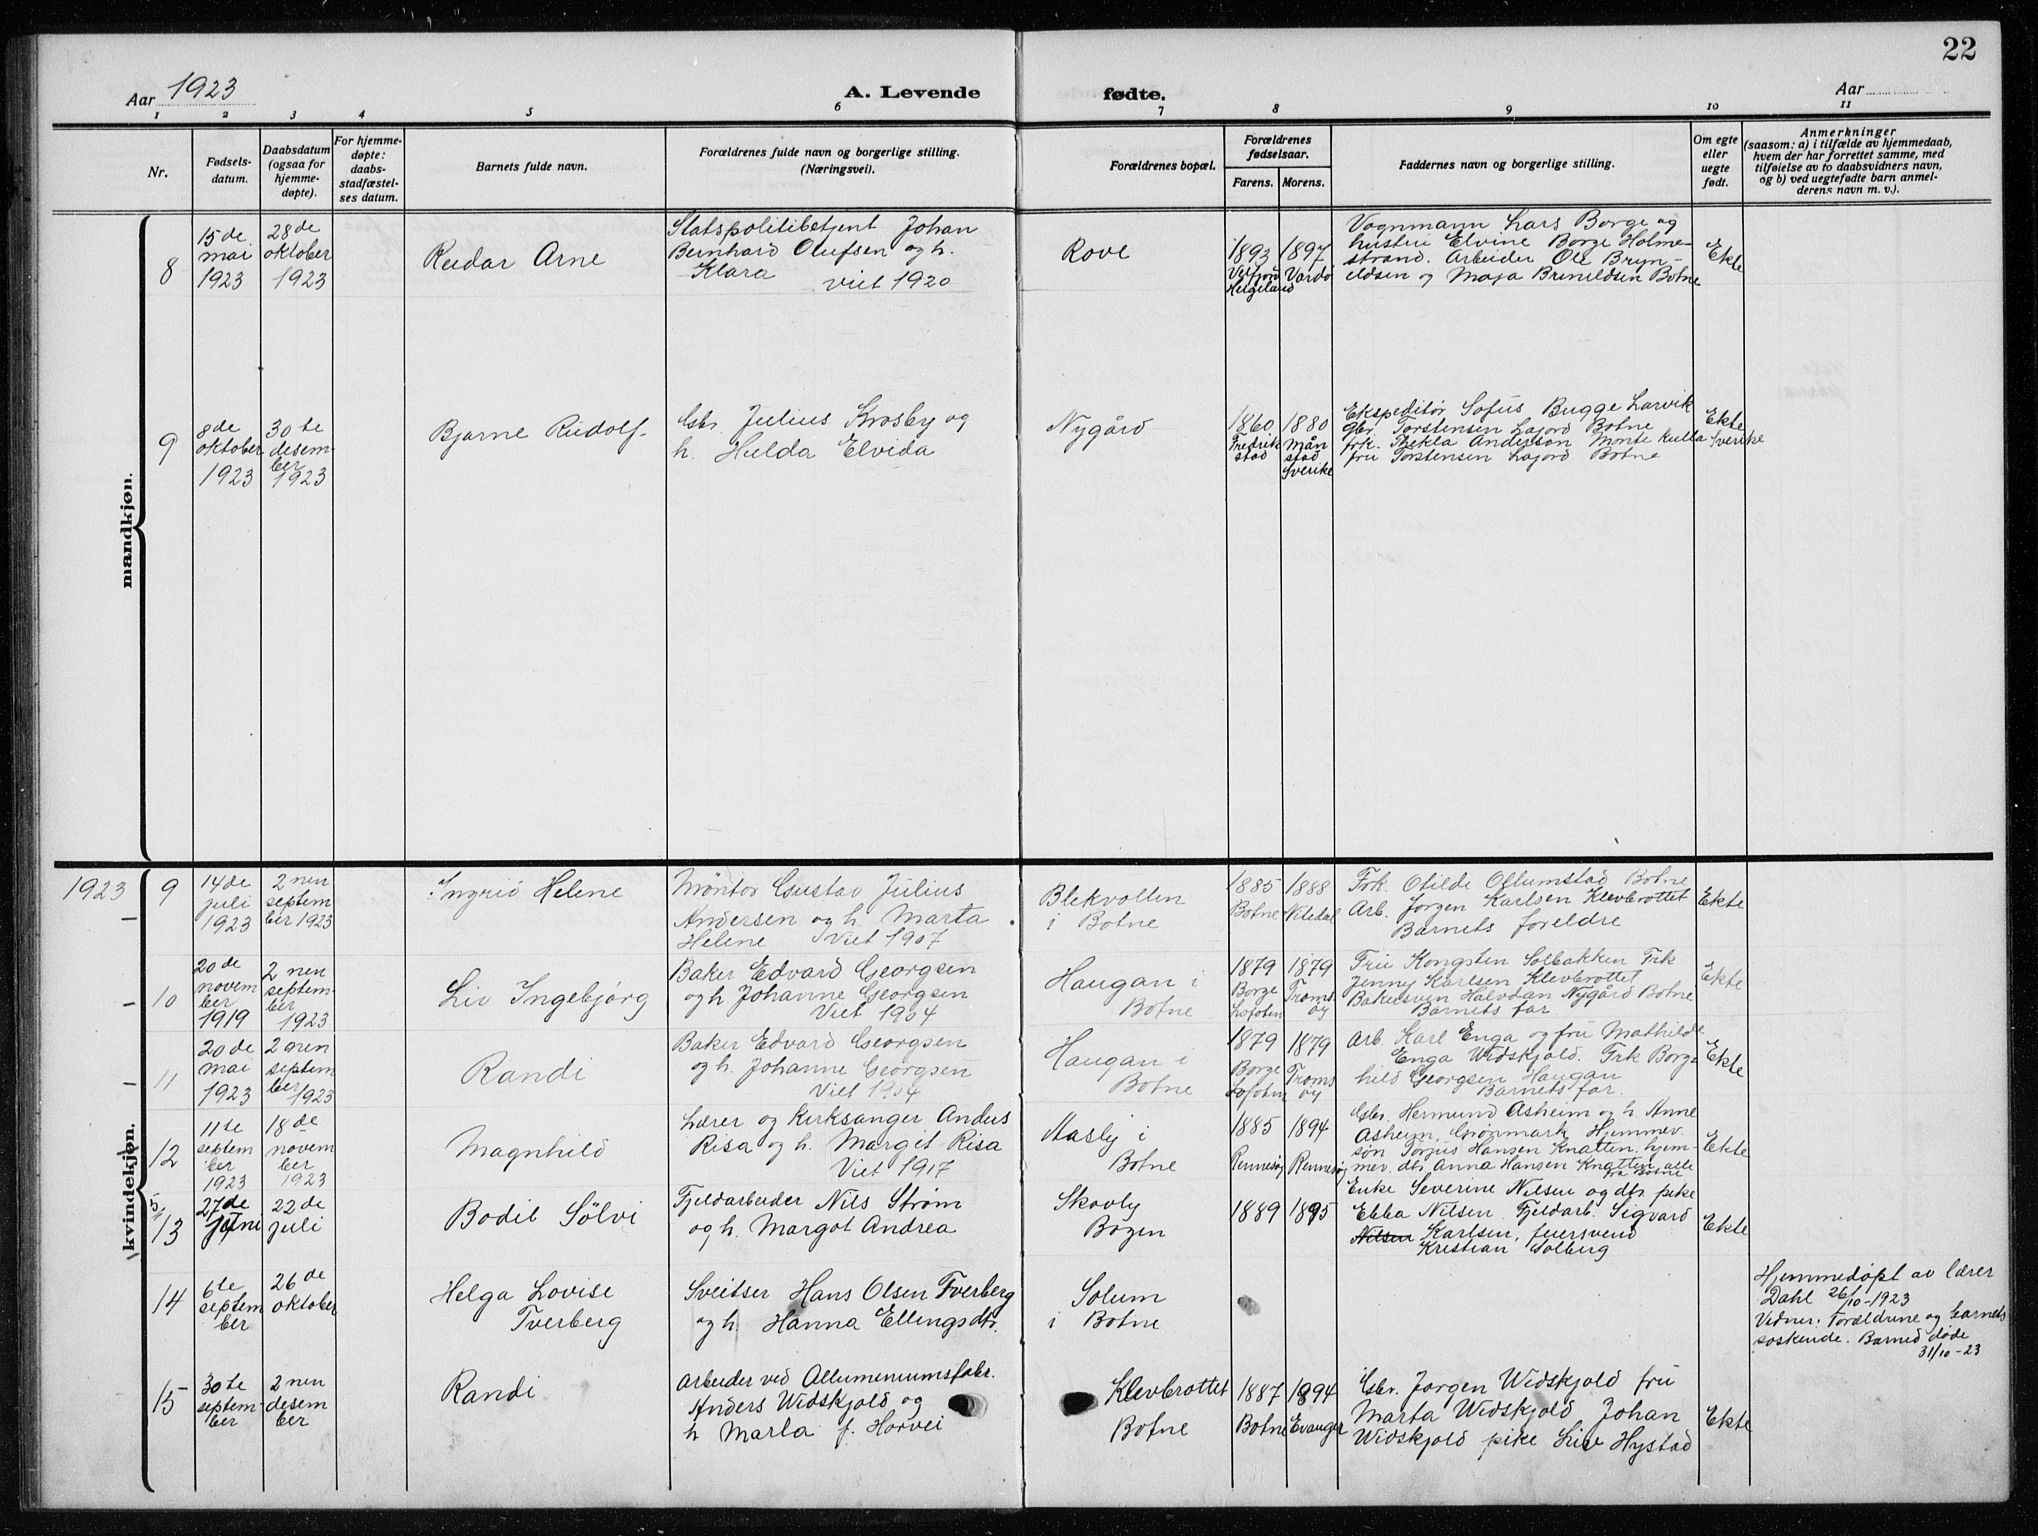 22
Aar 1923
A. Levende fødte.
Aar
1 2 3 4 5 6 7 8 9 10 11
Nr.
Fødsels-
datum.
Daabsdatum
(ogsaa for
hjemme-
døpte).
For hjemme-
døpte:
daabs-
stadfæstel-
ses datum.
Barnets fulde navn.
Forældrenes fulde navn og borgerlige stilling.
(Næringsvei).
Forældrenes bopæl.
Forældrenes
fødselsaar.
Farens. Morens.
Faddernes navn og borgerlige stilling.
Om egte
eller
uegte
født.
Anmerkninger
(saasom: a) i tilfælde av hjemmedaab,
hvem der har forrettet samme, med
tilføielse av to daabsvidners navn,
og b) ved uegtefødte barn anmel-
derens navn m. v.).
mandkjøn.
8
15de
mai
1923
28de
oktober
1923
Reidar Arne
Statspolitibetjent Johan
Bernhard Olufsen og h.
Klara viet 1920
Rove
1893
Velfjord
Helgeland
1897
Vardø
Vognmann Lars Borge og
hustru Elvine Borge Holme-
strand. Arbeider Ole Bryn-
eldsen og Maja Bruneldsen Botne
Ekte
9
8de
oktober
1923
30te
desem-
ber
1923
Bjarne Rudolf
Gbr. Julius Krosby og
h. Hulda Elvida
Nygård
1860
Fredrik
stad
1880
Mån
stad
Sverike
Ekspeditør Sofus Bugge Larvik
gbr. Torstensen Lajord Botne
frk. Thekla Anderson Monte Kulla Sverike
fru Torstensen Lajord Botne
Ekte
kvindekjøn.
1923
9
14de
juli
1923
2nen
septem
ber 1923
Ingrid Helene
Møntør Gustav Julius
Andersen og h. Marta
Helene Viet 1907
Blekvollen
i Botne
1885
Botne
1888
Nitedal
Frk. Otilde Ollumstad Botne
Arb. Jørgen Karlsen Klevbrottet
Barnets foreldre
Ekte
10
20de
novem
ber
1919
2nen
septem-
ber
1923
Liv Ingebjørg
Baker Edvard Georgsen
og h Johanne Georgsen
Viet 1904
Haugan i
Botne
1879
Borge
Lofoten
1879
Troms
øy
Fru Kongsten Solbakken Frk
Jenny Karlsen Klevbrottet
Bakersven Halvdan Nygård Botne
Barnets far
Ekte
11
20de
mai
1923
2nen
septem
ber
1923
Randi
Baker Edvard Georgsen
og h. Johanne Georgsen
Viet 1904
Haugan i
Botne
1879
Borge
Lofoten
1879
Troms
øy
Arb. Karl Enga og fru Mathilde
Enga Widskjold. Frk Borg-
hild Georgsen Haugan
Barnets far.
Ekte
12
11te
septem
ber
1923
18de
novem
ber
1923
Magnhild
Lærer og Kirksanger Anders
Risa og h. Marget Risa
Viet 1917
Aasly i
Botne
1885
Rennesøy
1894
Rennesøy
Gbr. Hermund Asheim og h Anne
Asheim, Grønmark Hjemmev.
søn Torjus Hansen Knatten, hjem-
mev. dtr. Anna Hansen Knatten, alle
fra Botne
Ekte
13
27de
juni
22de
juli
Bodil Sölvi
Fjeldarbeider Nils Strøm
og h. Margot Andrea
Skovly
Bogen
1889
1895
Enke Severine Nilsen og dtr. pike
Ebba Nilsen Fjeldarb. Sigvard
Nilsen Karlsen, feiersvend
Kristian Solberg
Ekte
14
6te
septem
ber
26de
oktober
Helga Lovise
Tverberg
Sveitser Hans Olsen Tverberg
og h. Hanna Ellingsdtr.
Solum
i Botne
Hjemmedøpt av lærer
Dahl 26/10-1923
Vidner: Forældrene og barnets
søskende. Barnet døde
31/10-23
15
30te
septem-
ber
2nen
desem
ber
Randi
Arbeider ved Allumeniumsfabr.
Anders Widskjold og
h Marta f. Horvei
Klevbrottet
Botne
1887
Botne
1894
Evanger
Gbr. Jørgen Widskjold fru
Marta Widskjold Johan
Widskjold pike Liv Hystad
Ekte